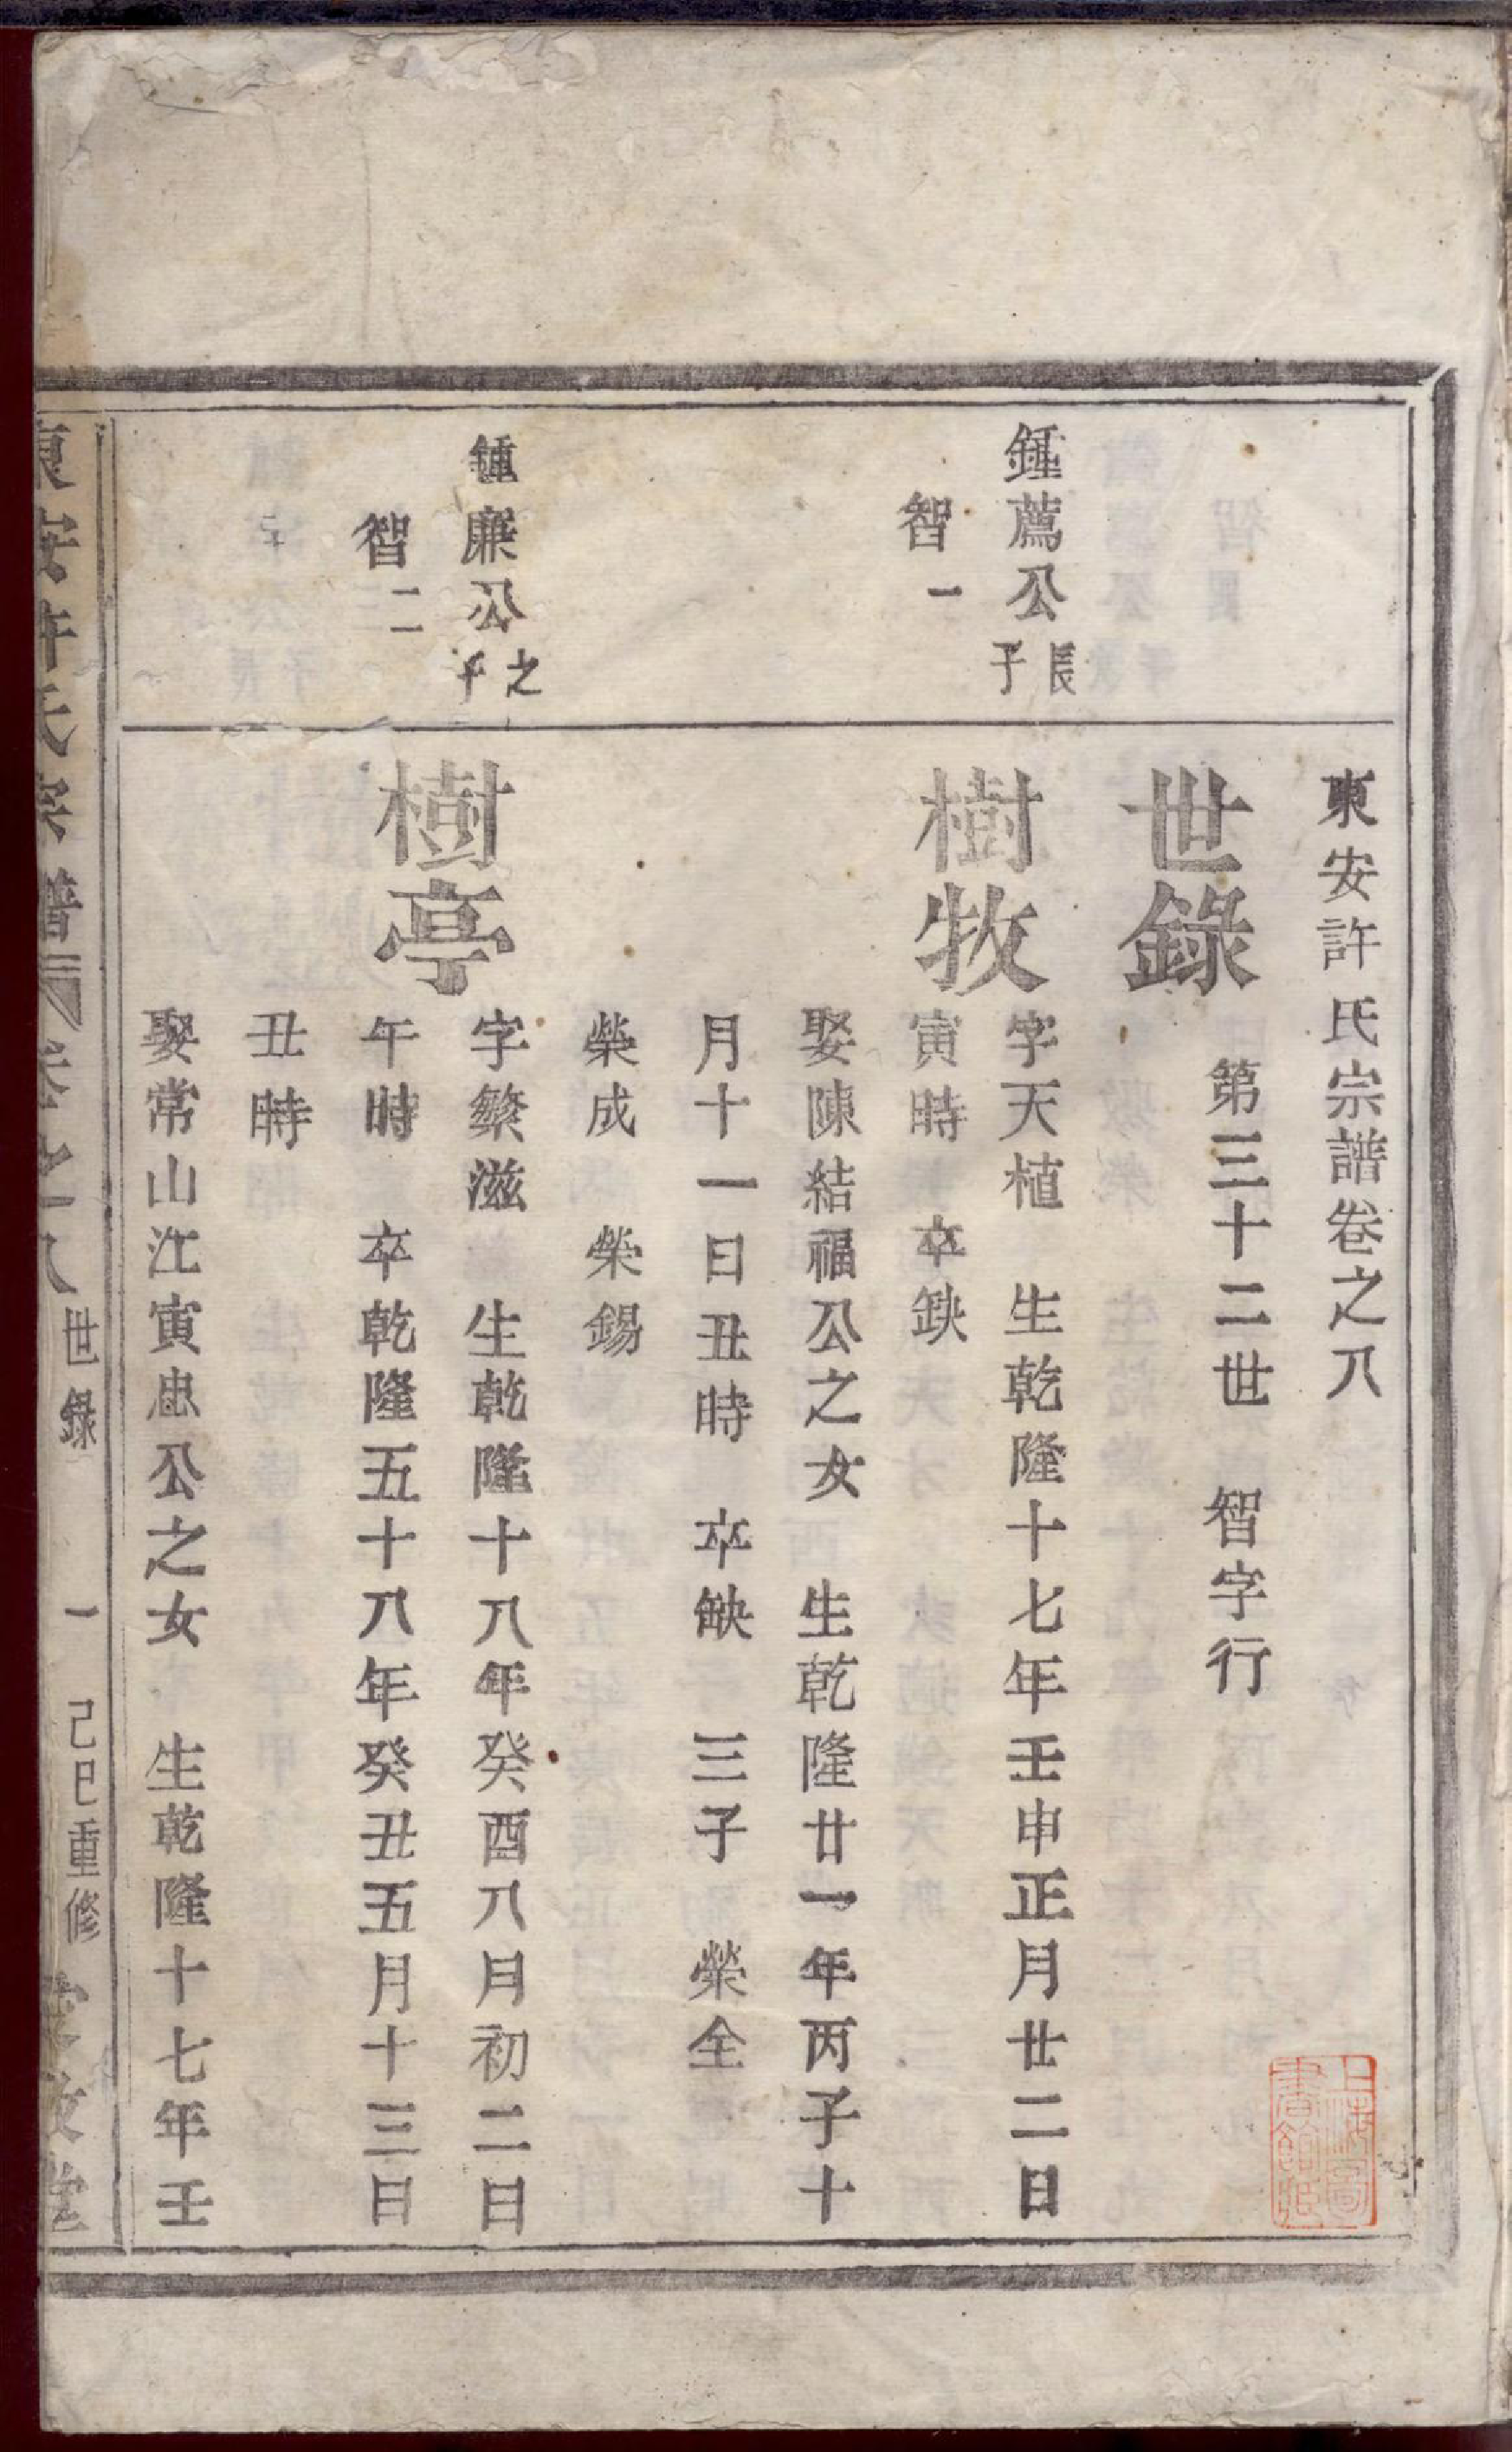 東安許氏宗譜卷之八
世錄
第三十二世 智字行
鍾薦公長子
智一
樹牧
字天植 生乾隆十七年壬申正月廿二日
寅時 卒缺
娶陳結福公之女 生乾隆廿一年丙子十
月十一日丑時 卒缺 三子 榮全
榮成 榮錫
鍾廉公之子
智二
樹亭
字繁滋 生乾隆十八年癸酉八月初二日
午時 卒乾隆五十八年癸丑五月十三日
丑時
娶常山江寅忠公之女 生乾隆十七年壬
東安許氏宗譜 卷之八 世錄 一 己巳重修
上海圖書館藏